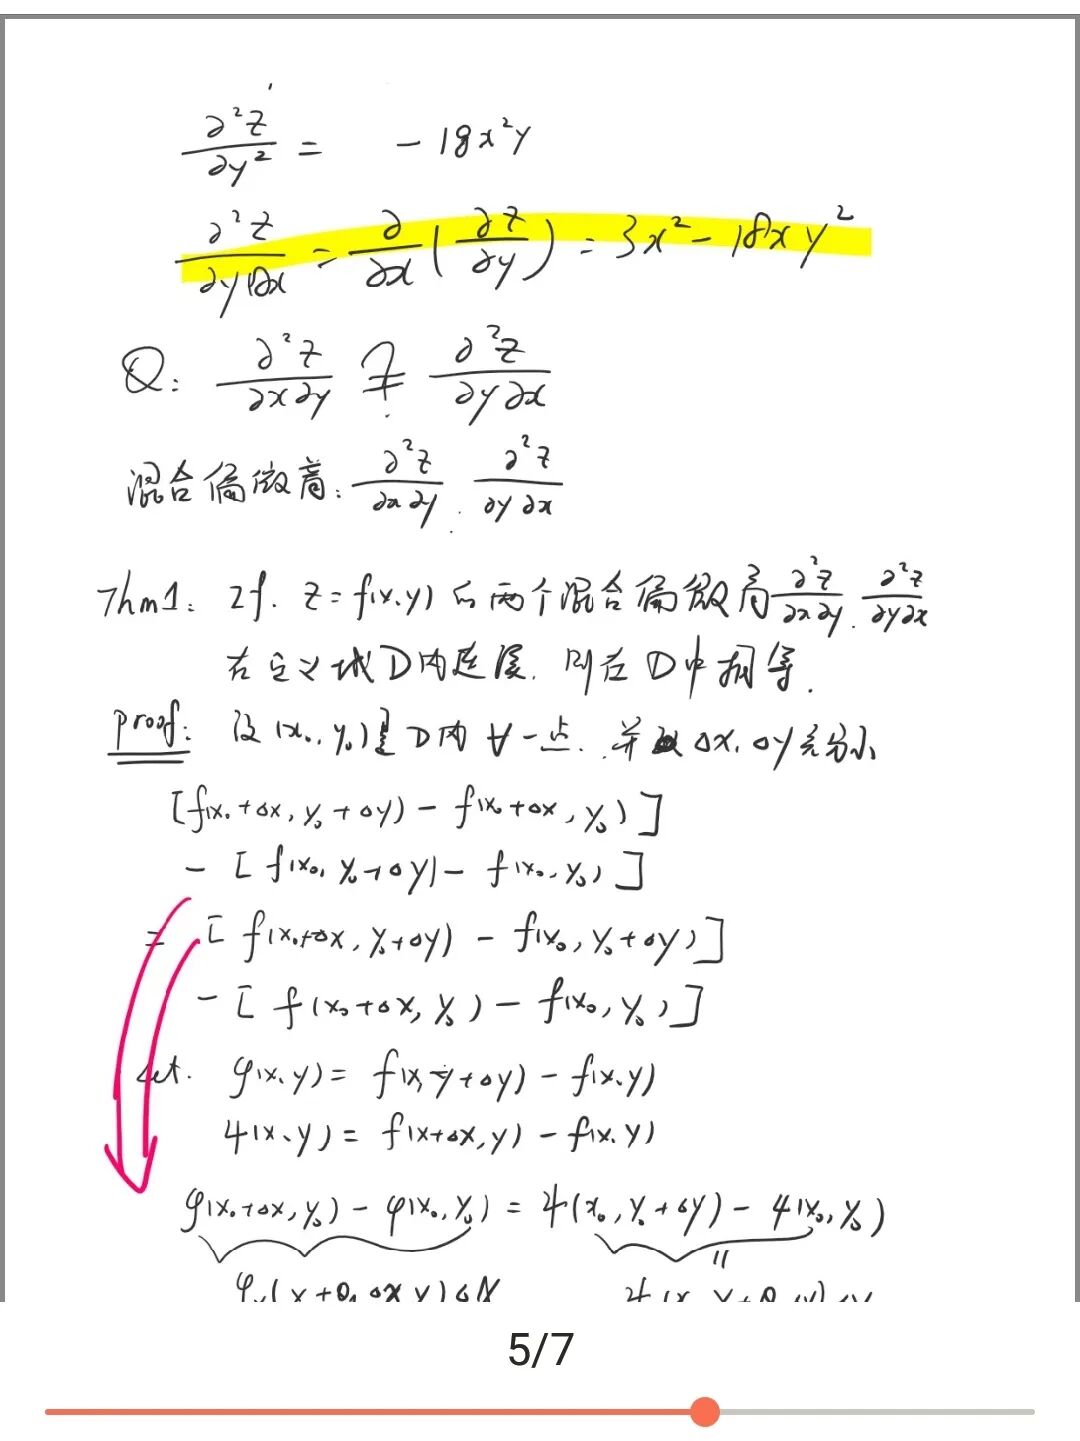 ∂²z/∂y² = -18x²y
∂²z/∂y∂x = ∂/∂x(∂z/∂y) = 3x² - 18xy²
Q: ∂²z/∂x∂y ?= ∂²z/∂y∂x
混合偏微商: ∂²z/∂x∂y . ∂²z/∂y∂x
Thm1: If. z = f(x.y) 的两个混合偏微商 ∂²z/∂x∂y . ∂²z/∂y∂x
在定义域D内连续. 则在D中相等.
proof: 设(x₀, y₀)是D内∀一点. 并取Δx, Δy充分小
[f(x₀+Δx, y₀+Δy) - f(x₀+Δx, y₀)]
- [f(x₀, y₀+Δy) - f(x₀, y₀)]
= [f(x₀+Δx, y₀+Δy) - f(x₀, y₀+Δy)]
- [f(x₀+Δx, y₀) - f(x₀, y₀)]
Let. φ(x.y) = f(x, y+Δy) - f(x.y)
ψ(x、y) = f(x+Δx, y) - f(x.y)
φ(x₀+Δx, y₀) - φ(x₀, y₀) = ψ(x₀, y₀+Δy) - ψ(x₀, y₀)
5/7